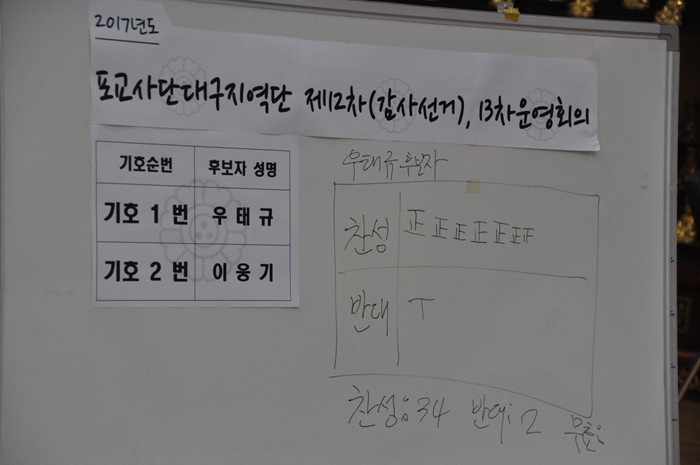 2017년도
포교사단대구지역단 제12차(감사선거), 13차운영회의
기호순번 후보자 성명
기호 1 번 우 태 규
기호 2 번 이 웅 기
우태규후보자
찬성 正 正 正 正 正 正 正
반대 丅
찬성: 34 반대: 2